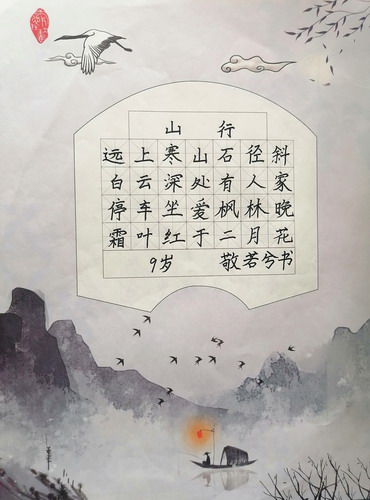 山行
远上寒山石径斜
白云深处有人家
停车坐爱枫林晚
霜叶红于二月花
9岁 敬若兮书